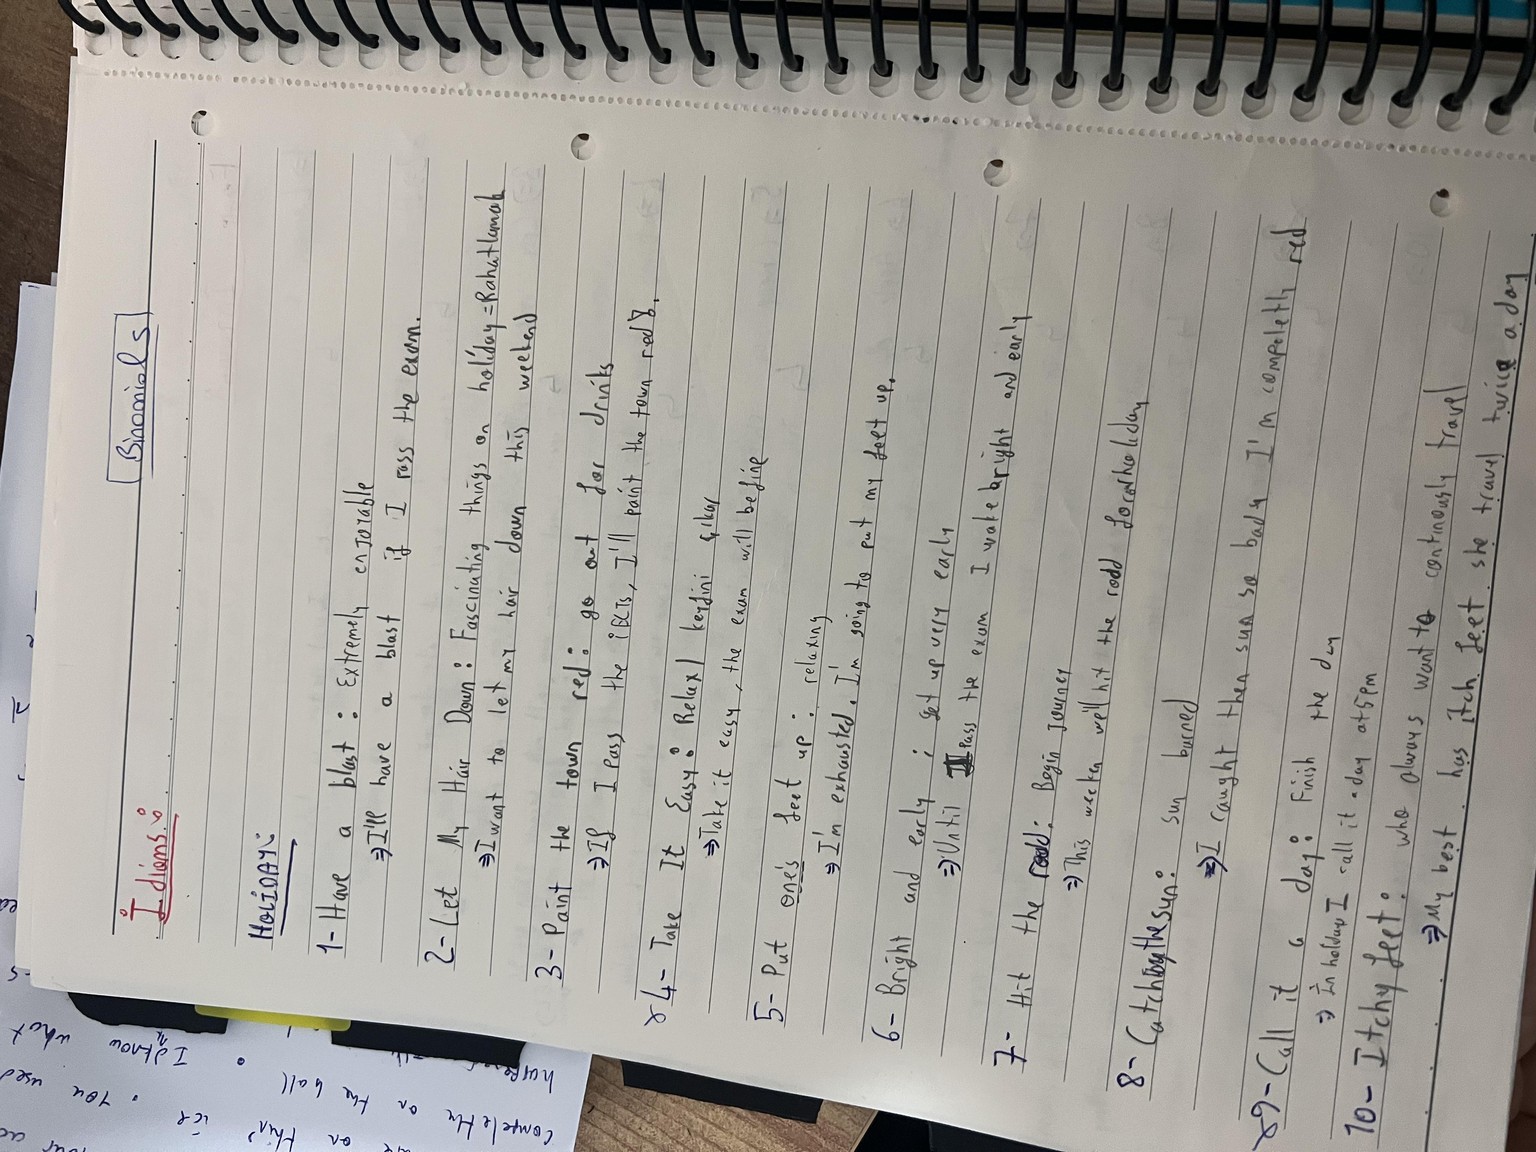 Binomials
Idioms:
HOLiDAY:
1- Have a blast : Extremely enjoyable
⇒ I'll have a blast if I pass the exam.
2- Let My Hair Down : Fascinating things on holiday = Rahatlamak
⇒ I want to let my hair down this weekend
3- Paint the town red : go out for drinks
⇒ If I pass the iELTS, I'll paint the town red.
4- Take It Easy : Relax / keyfini çıkar
⇒ Take it easy, the exam will begine
5- Put one's feet up : relaxing
⇒ I'm exhausted. I'm going to put my feet up.
6- Bright and early : get up very early
⇒ Until pass the exam I wake bright and early
7- Hit the road : Begin journey
⇒ This weeken we'll hit the rodd for holiday
8- Catch the sun : sun burned
⇒ I caught then sun so bady I'm completly red
9- Call it a day : Finish the day
⇒ In holiday I call it a day at 5 pm
10- Itchy feet : who always want to continously travel
⇒ My best has itch feet she travel twice a day
I know what
completly on the ball
on thin ice
You used